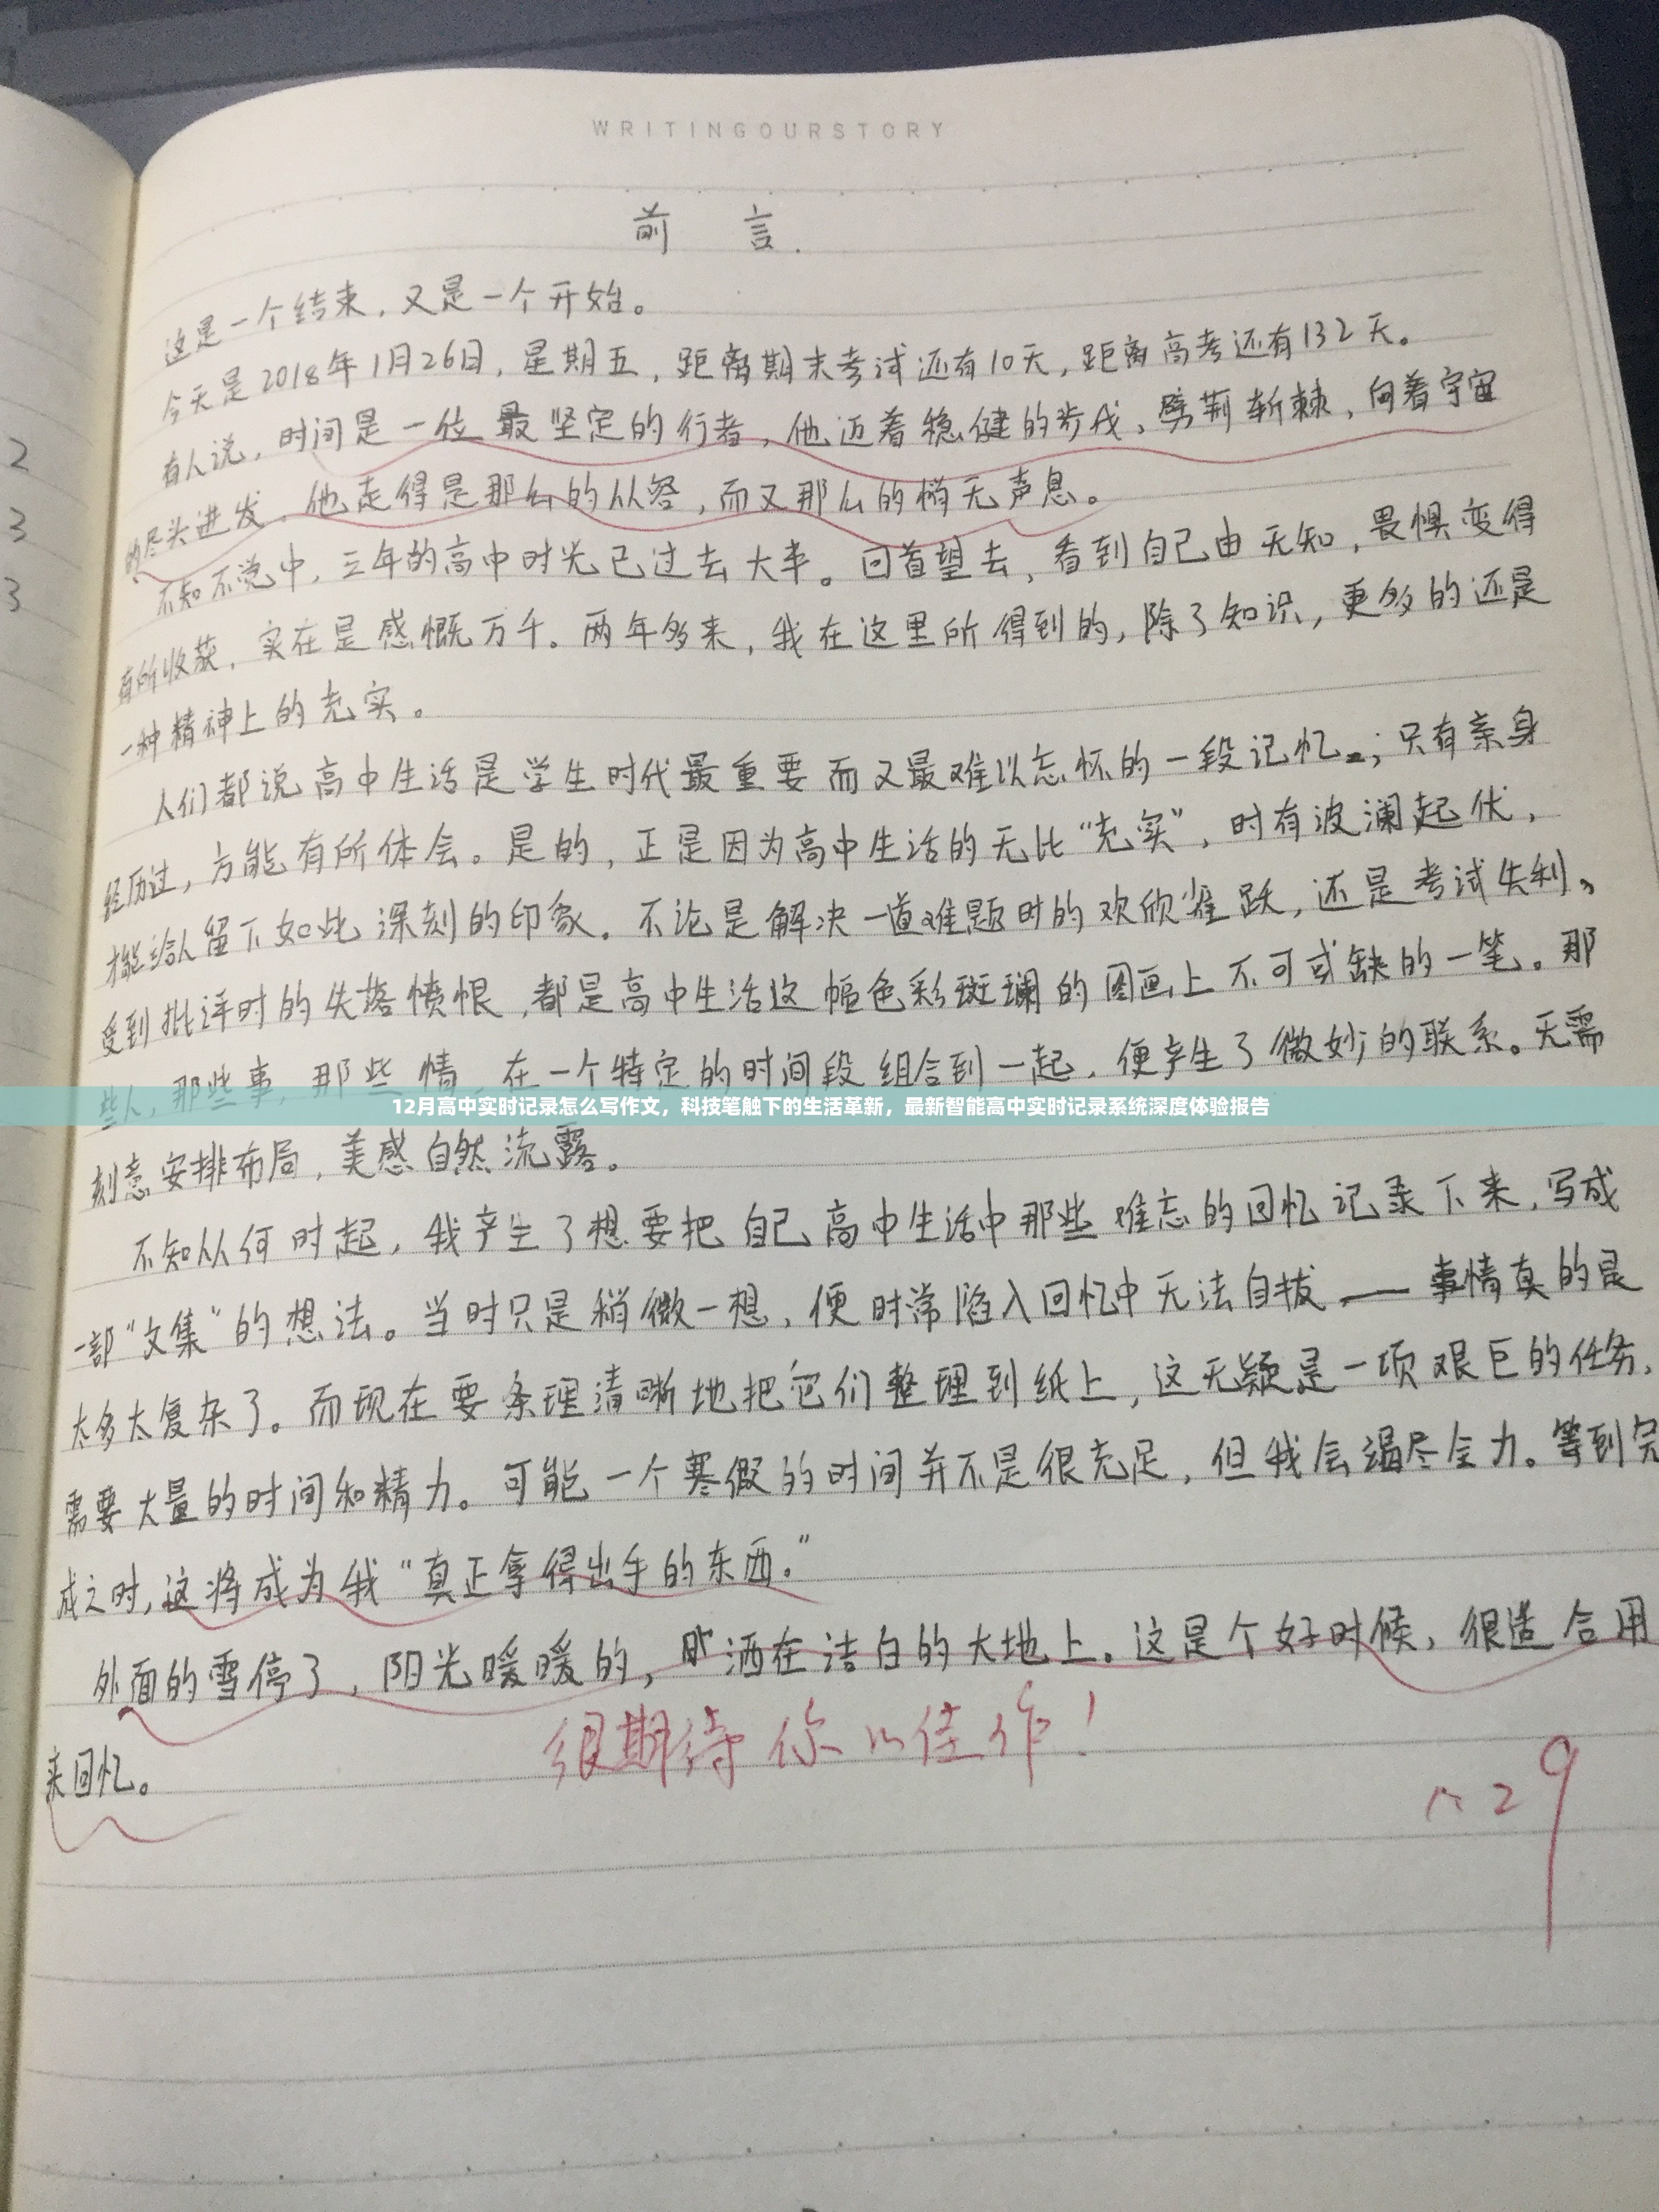 WRITINGOURSTORY
前 言.
这是一个结束，又是一个开始。
今天是2018年1月26日，星期五，距离期末考试还有10天，距离高考还有132天。
有人说，时间是一位最坚定的行者，他迈着稳健的步伐、劈荆斩棘，向着宇宙
的尽头进发，他走得是那么的从容，而又那么的悄无声息。
不知不觉中，三年的高中时光已过去大半。回首望去，看到自己由无知，畏惧变得
有所收获，实在是感慨万千。两年多来，我在这里所得到的，除了知识，更多的还是
一种精神上的充实。
人们都说高中生活是学生时代最重要而又最难以忘怀的一段记忆；只有亲身
经历过，方能有所体会。是的，正是因为高中生活的无比“充实”，时有波澜起伏，
才能给人留下如此深刻的印象。不论是解决一道难题时的欢欣雀跃，还是考试失利、
受到批评时的失落愤恨，都是高中生活这幅色彩斑斓的图画上不可或缺的一笔。那
些人，那些事，那些情，在一个特定的时间段组合到一起，便产生了微妙的联系。无需
12月高中实时记录怎么写作文，科技笔触下的生活革新，最新智能高中实时记录系统深度体验报告
刻意安排布局，美感自然流露。
不知从何时起，我产生了想要把自己高中生活中那些难忘的回忆记录下来，写成
一部“文集”的想法。当时只是稍微一想，便时常陷入回忆中无法自拔——事情真的是
太多太复杂了。而现在要条理清晰地把它们整理到纸上，这无疑是一项艰巨的任务，
需要大量的时间和精力。可能一个寒假的时间并不是很充足，但我会竭尽全力。等到完
成之时，这将成为我“真正拿得出手的东西。”
外面的雪停了，阳光暖暖的，洒在洁白的大地上。这是个好时候，很适合用
来回忆。
很期待你的佳作！
2
3
3